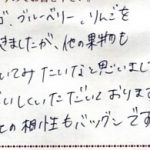 ゴ、ブルーベリー、りんごを
きましたが、他の果物も
いてみたいなと思いまし
いしくいただいておりま
の相性もバッグンです